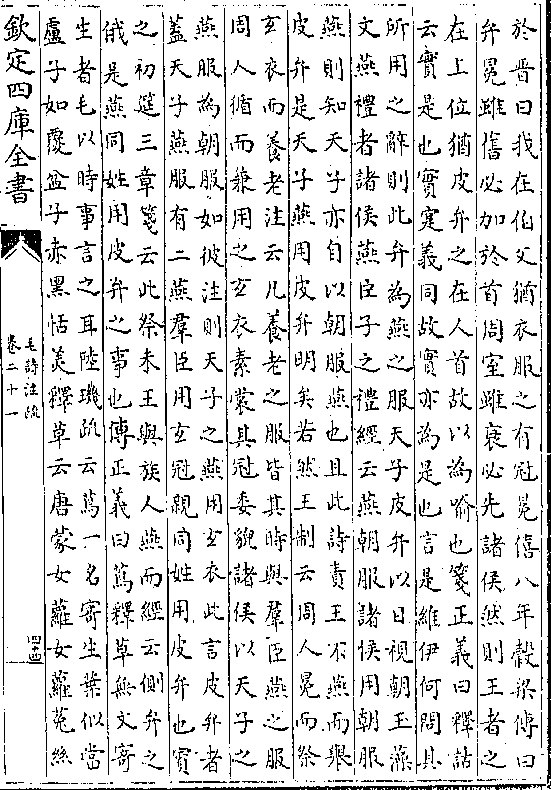 於晉曰我在伯父猶衣服之有冠冕僖八年穀梁傳曰
弁冕雖舊必加於首周室雖衰必先諸侯然則王者之
在上位猶皮弁之在人首故以為喻也箋正義曰釋詁
云實是也實寔義同故實亦為是也言是維伊何問其
所用之辭則此弁為燕之服天子皮弁以日視朝玉藻
文燕禮者諸侯燕臣子之禮經云燕朝服諸侯用朝服
燕則知天子亦自以朝服燕也且此詩責王不燕而舉
皮弁是天子燕用皮弁明矣若然王制云周人冕而祭
玄衣而養老注云凡養老之服皆其時與羣臣燕之服
周人循而兼用之玄衣素裳其冠委貌諸侯以天子之
燕服為朝服如彼注則天子之燕用玄衣此言皮弁者
蓋天子燕服有二燕羣臣用玄冠親同姓用皮弁也賓
之初筵三章箋云此祭末王與族人燕而經云側弁之
俄是燕同姓用皮弁之事也傳正義曰蔦釋草無文寄
生者毛以時事言之耳陸璣疏云蔦一名寄生葉似當
盧子如覆盆子赤黑恬美釋草云唐蒙女蘿女蘿菟絲
欽定四庫全書
毛詩注疏
卷二十一
四十四